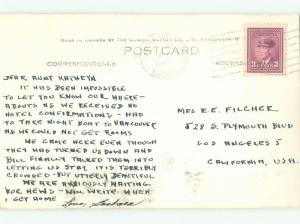 MADE IN CANADA BY THE GOWEN SUTTON CO. LTD. VANCOUVER, B.C.
POSTCARD
CORRESPONDENCE
ADDRESS
DEAR AUNT KATHRYN
IT HAS BEEN IMPOSSIBLE
TO LET YOU KNOW OUR WHERE-
ABOUTS AS WE RECEIVED NO
HOTEL CONFIRMATIONS - HAD
TO TAKE NIGHT BOAT TO VANCOUVER
AS WE COULD NOT GET ROOMS
WE CAME HERE EVEN THOUGH
THEY HAD TURNED US DOWN AND
BILL FINALLY TALKED THEM INTO
LETTING US STAY. IT IS TERRIBLY
CROWDED - BUT UTTERLY BEAUTIFUL
WE ARE ANXIOUSLY WAITING
FOR NEWS - WILL WRITE WHEN
I GET HOME
Love, Barbara
MRS R.E. FILCHER
528 S. PLYMOUTH BLVD
LOS ANGELES 5
CALIFORNIA, U.S.A.
3 3